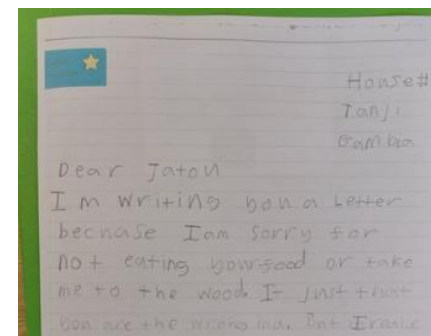 House#
Tanji
Gambia
Dear Jatou
I m writing you a Letter
because I am sorry for
not eating your food or take
me to the wood. It just that
you are the wrong ma, But I